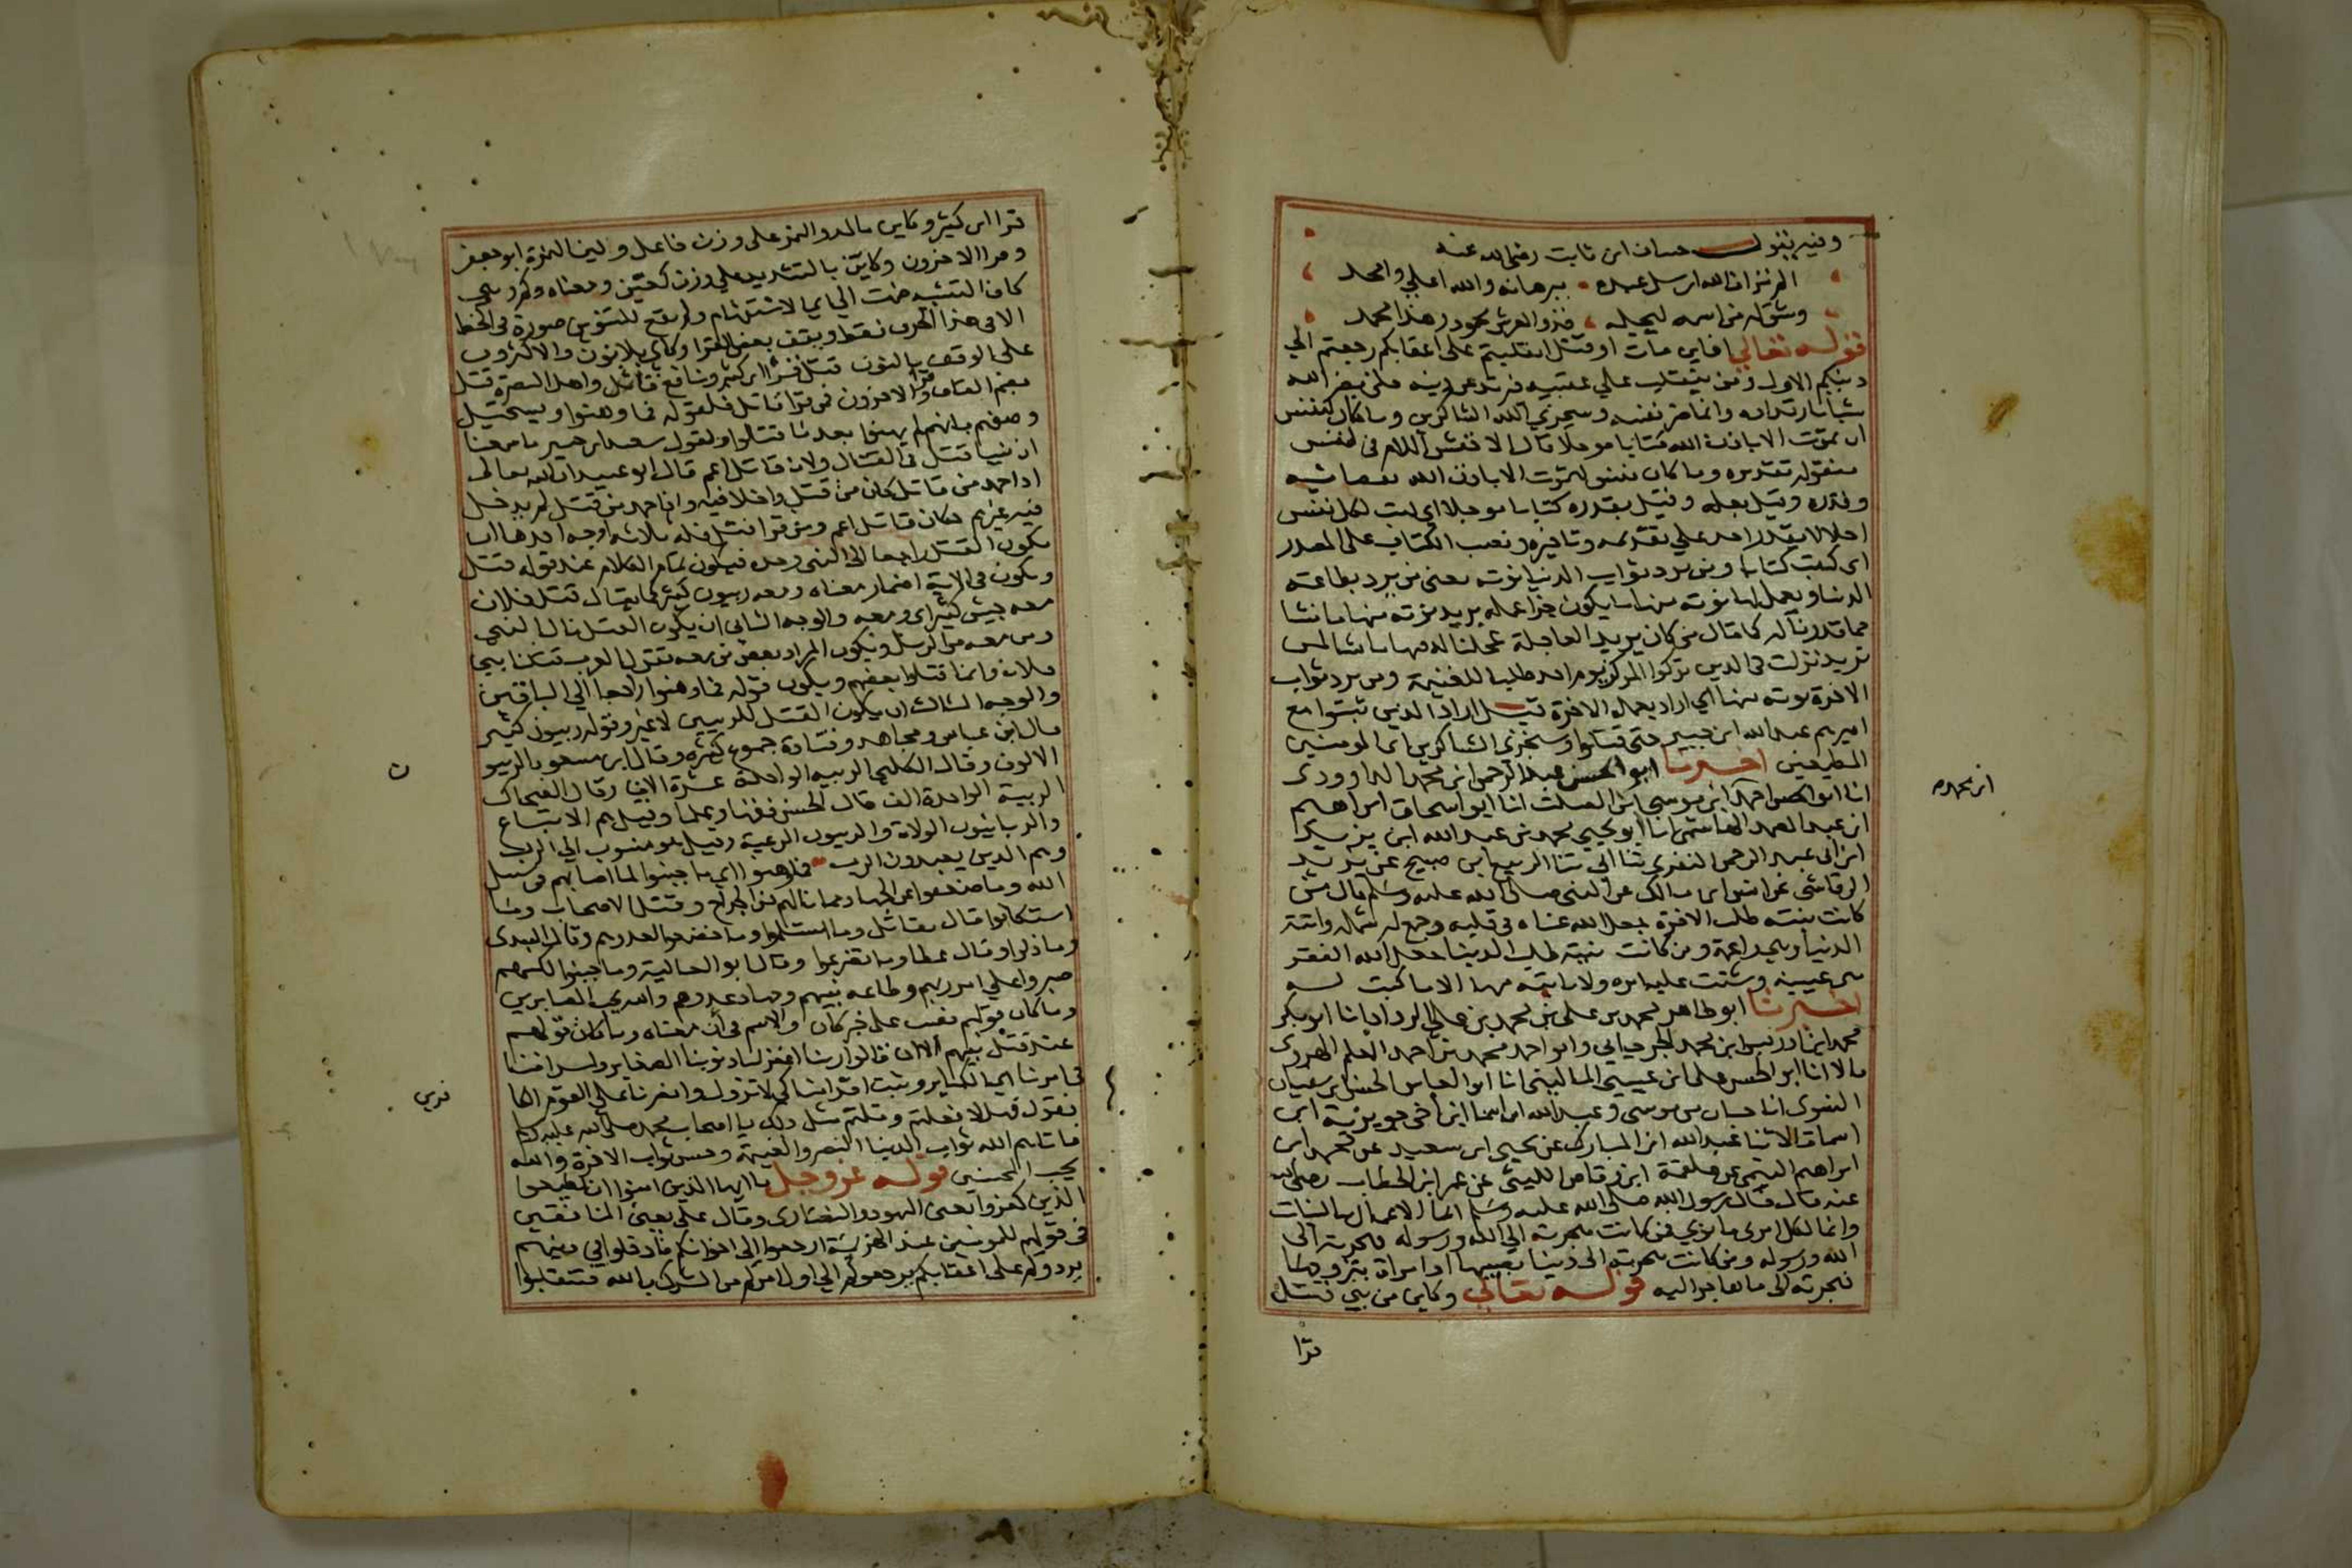 وفيه يقول حسان ابن ثابت رضي الله عنه
الم تر ان الله ارسل عبده ببرهانه والله اعلي وامجد
وشق له من اسمه ليجله فذو العرش محمود وهذا محمد
قوله تعالي افاين مات او قتل انقلبتم على اعقابكم رجعتم الي
دينكم الاول ومن ينقلب علي عقبيه فيرتد عن دينه فلن يضر الله
شيا بارتداده وانما ضر نفسه وسيجزي الله الشاكرين وما كان لنفس
ان تموت الا باذن الله كتابا موجلا قال الاخفش اللام في لنفس
منقوله تقديره وما كان نفس لتموت الا باذن الله بقضائه
وقدره وقيل بعلمه وقيل بقدره كتابا موجلا اي لكل نفس
اجلا لا يقدر احد علي تقديمه وتاخيره ونصب الكتاب على المصدر
اي كتب كتابا ومن يرد ثواب الدنيا نوته يعني من يرد بطاعته
الدنيا ويعمل لها نوته منها ما يكون جزا عمله يريد نوته منها ما نشا
مما قدرنا له كما قال من كان يريد العاجلة عجلنا له فيها ما نشا لمن
نريد نزلت في الدين تركوا المركز يوم احد طلبا للغنيمة ومن يرد ثواب
الاخرة نوته منها اي اراد بعمله الاخرة قيل اراد الذين ثبتوا مع
اميرهم عبد الله ابن جبير حتي قتلوا وسنجزي الشاكرين اي المومنين
المطيعين اخبرنا ابو الحسن عبد الرحمن ابن محمد الداوودي
انا ابو الحسن احمد ابن موسي ابن الصلت انا ابو اسحاق ابراهيم
ابن عبد الصمد الهاشمي انا ابو يحيي محمد بن عبد الله ابن يزيد
ابن عبد الرحمن المقري ثنا ابي ثنا الربيع ابن صبيح عن يزيد
الرقاشي عن انس ابن مالك عن النبي صلي الله عليه وسلم قال من
كانت نيته طلب الاخرة جعل الله غناه في قلبه وجمع له شمله واتته
الدنيا وهي راغمة ومن كانت نيته طلب الدنيا جعل الله الفقر
بين عينيه وشتت عليه امره ولا ياتيه منها الا ما كتب له
اخبرنا ابو طاهر محمد بن علي بن محمد بن علي الزراد انا ابو بكر
محمد ابن ادريس ابن محمد الجرجاني وابو احمد محمد بن احمد المعلم الهروي
قالا انا ابو الحسن علي ابن عيسي الماليني انا ابو العباس الحسن بن سفيان
النسوي انا حسان بن موسى وعبد الله ابن اسما ابن اخي جويرية ابن
اسما قالا ثنا عبد الله ابن المبارك عن يحيى ابن سعيد عن محمد ابن
ابراهيم التيمي عن علقمة ابن وقاص الليثي عن عمر ابن الخطاب رضي الله
عنه قال قال رسول الله صلي الله عليه وسلم انما الاعمال بالنيات
وانما لكل امري ما نوي فمن كانت هجرته الي الله ورسوله فهجرته الى
الله ورسوله ومن كانت هجرته الى دنيا يصيبها او امراة يتزوجها
فهجرته الى ما هاجر اليه قوله تعالي وكاين من نبي قتل
قرا
ابن محمد
قرا ابن كثير وكاين بالمد والهمز على وزن فاعل ولين الهمزة ابو جعفر
وقرا الاخرون وكاين بالتشديد علي وزن كعين ومعناه وكم وهي
كاف التشبيه ضمت الي اي الاستفهام ولم يقع للتنوين صورة في الخط
الا في هذا الحرف فقط ويقف بعض القرا وكاي بلا نون والاكثرون
على الوقف بالنون قتل قرا ابن كثير ونافع واهل البصرة قتل
بضم القاف وقرا الاخرون فمن قرا قاتل فلقوله فما وهنوا ويستحيل
وصفهم بانهم لم يهنوا بعد ما قتلوا ولقول سعيد ابن جبير ما سمعنا
ان نبيا قتل في القتال ولان قاتل اعم قال ابو عبيد ان الله تعالى
اذا حمد من قاتل كان من قتل داخلا فيه واذا حمد من قتل لم يدخل
فيه غيرهم فكان قاتل اعم ومن قرا قتل فله ثلاثه اوجه احدها ان
يكون القتل راجعا الى النبي وحده فيكون تمام الكلام عند قوله قتل
ويكون في الاية اضمار معناه ومعه ربيون كثير كما يقال قتل فلان
معه جيش كثير اي ومعه والوجه الثاني ان يكون القتل نال النبي
ومن معه من الربيين ويكون المراد بعض من معه تقول العرب قتلنا بني
فلان وانما قتلوا بعضهم ويكون قوله فما وهنوا راجعا الي الباقين
والوجه الثالث ان يكون القتل للربيين لا غير وقوله ربيون كثير
قال ابن عباس ومجاهد وقتادة جموع كثيره وقال ابن مسعود الربيون
الالوف وقال الكلبي الربيه الواحدة عشرة الاف وقال الضحاك
الربية الواحدة الف قال الحسن فقها وعلما وقيل هم الاتباع
والربانيون الولاة والربيون الرعية وقيل هو منسوب الي الرب
وهم الدين يعبدون الرب فما وهنوا اي ما جبنوا لما اصابهم في سبيل
الله وما ضعفوا عن الجهاد مما نالهم من الجراح وقتل الاصحاب وما
استكانوا قال مقاتل وما استسلموا وما خضعوا لعدوهم وقال السدي
وما ذلوا وقال عطا وما تضرعوا وقال ابو العالية وما جبنوا لكنهم
صبروا علي امر ربهم وطاعه نبيهم وجهاد عدوهم والله يحب الصابرين
وما كان قولهم نصب على خبر كان والاسم في ان معناه وما كان قولهم
عند قتل نبيهم الا ان قالوا ربنا اغفر لنا ذنوبنا الصغاير واسرافنا
في امرنا اي الكباير وثبت اقدامنا كي لا تزول وانصرنا على القوم الكا
فرين
يقول فهلا فعلتم وقلتم مثل ذلك يا اصحاب محمد صلى الله عليه وسلم
فاتاهم الله ثواب الدنيا النصر والغنيمة وحسن ثواب الاخرة والله
يحب المحسنين قوله عز وجل يا ايها الذين امنوا ان تطيعوا
الذين كفروا يعني اليهود والنصارى وقال علي يعني المنافقين
في قولهم للمومنين عند الهزيمة ارجعوا الى اخوانكم وادخلوا في دينهم
يردوكم على اعقابكم يرجعوكم الي اول امركم من الشرك بالله فتنقلبوا
ن